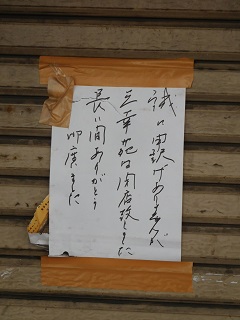 誠に申訳けありませんが
三幸苑は閉店致しました
長い間ありがとう
御座いました